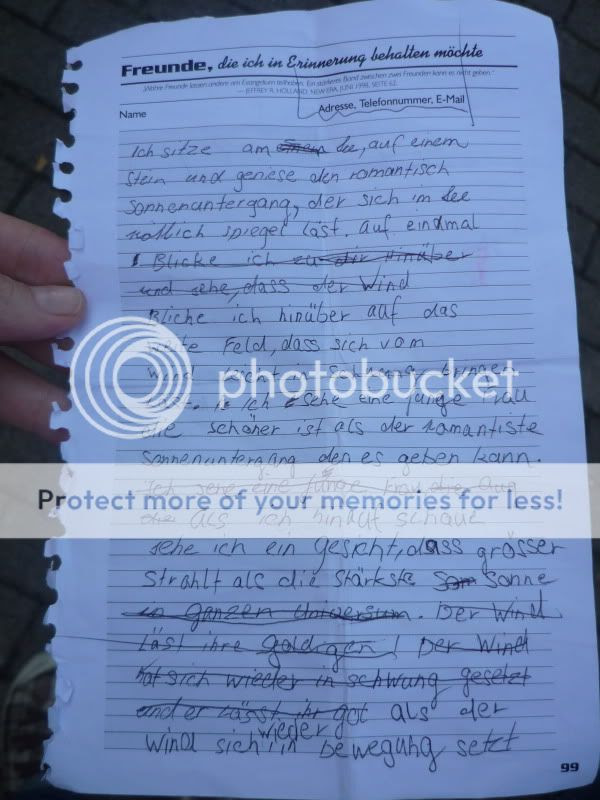 Freunde, die ich in Erinnerung behalten möchte
„Wahre Freunde lassen andere am Evangelium teilhaben. Ein stärkeres Band zwischen zwei Freunden kann es nicht geben.“
— JEFFREY R. HOLLAND, NEW ERA, JUNI 1998, SEITE 62
Name Adresse, Telefonnummer, E-Mail
Ich sitze am einem See, auf einem
Stein und geniese den romantisch
Sonnenuntergang, der sich im See
rötlich spiegel läst. Auf eindmal
Blicke ich zu dir Hinüber
und sehe, dass der Wind
Blicke ich hinüber auf das
Feld, dass sich vom
photobucket
Wind
ich sehe eine junge Frau
die schöner ist als der romantiste
Sonnenuntergang den es geben kann.
Ich sehe eine junge Frau die
Protect more of your memories for less!
als ich hinauf schaue
sehe ich ein Gesicht, dass grösser
Strahlt als die stärkste Sonne
Ganzen Universum. Der Wind
Läst ihre goldigen Der Wind
hat sich wieder in schwung gesetzt
und er lässt ihr als der
wieder
Wind sich in bewegung setzt
99